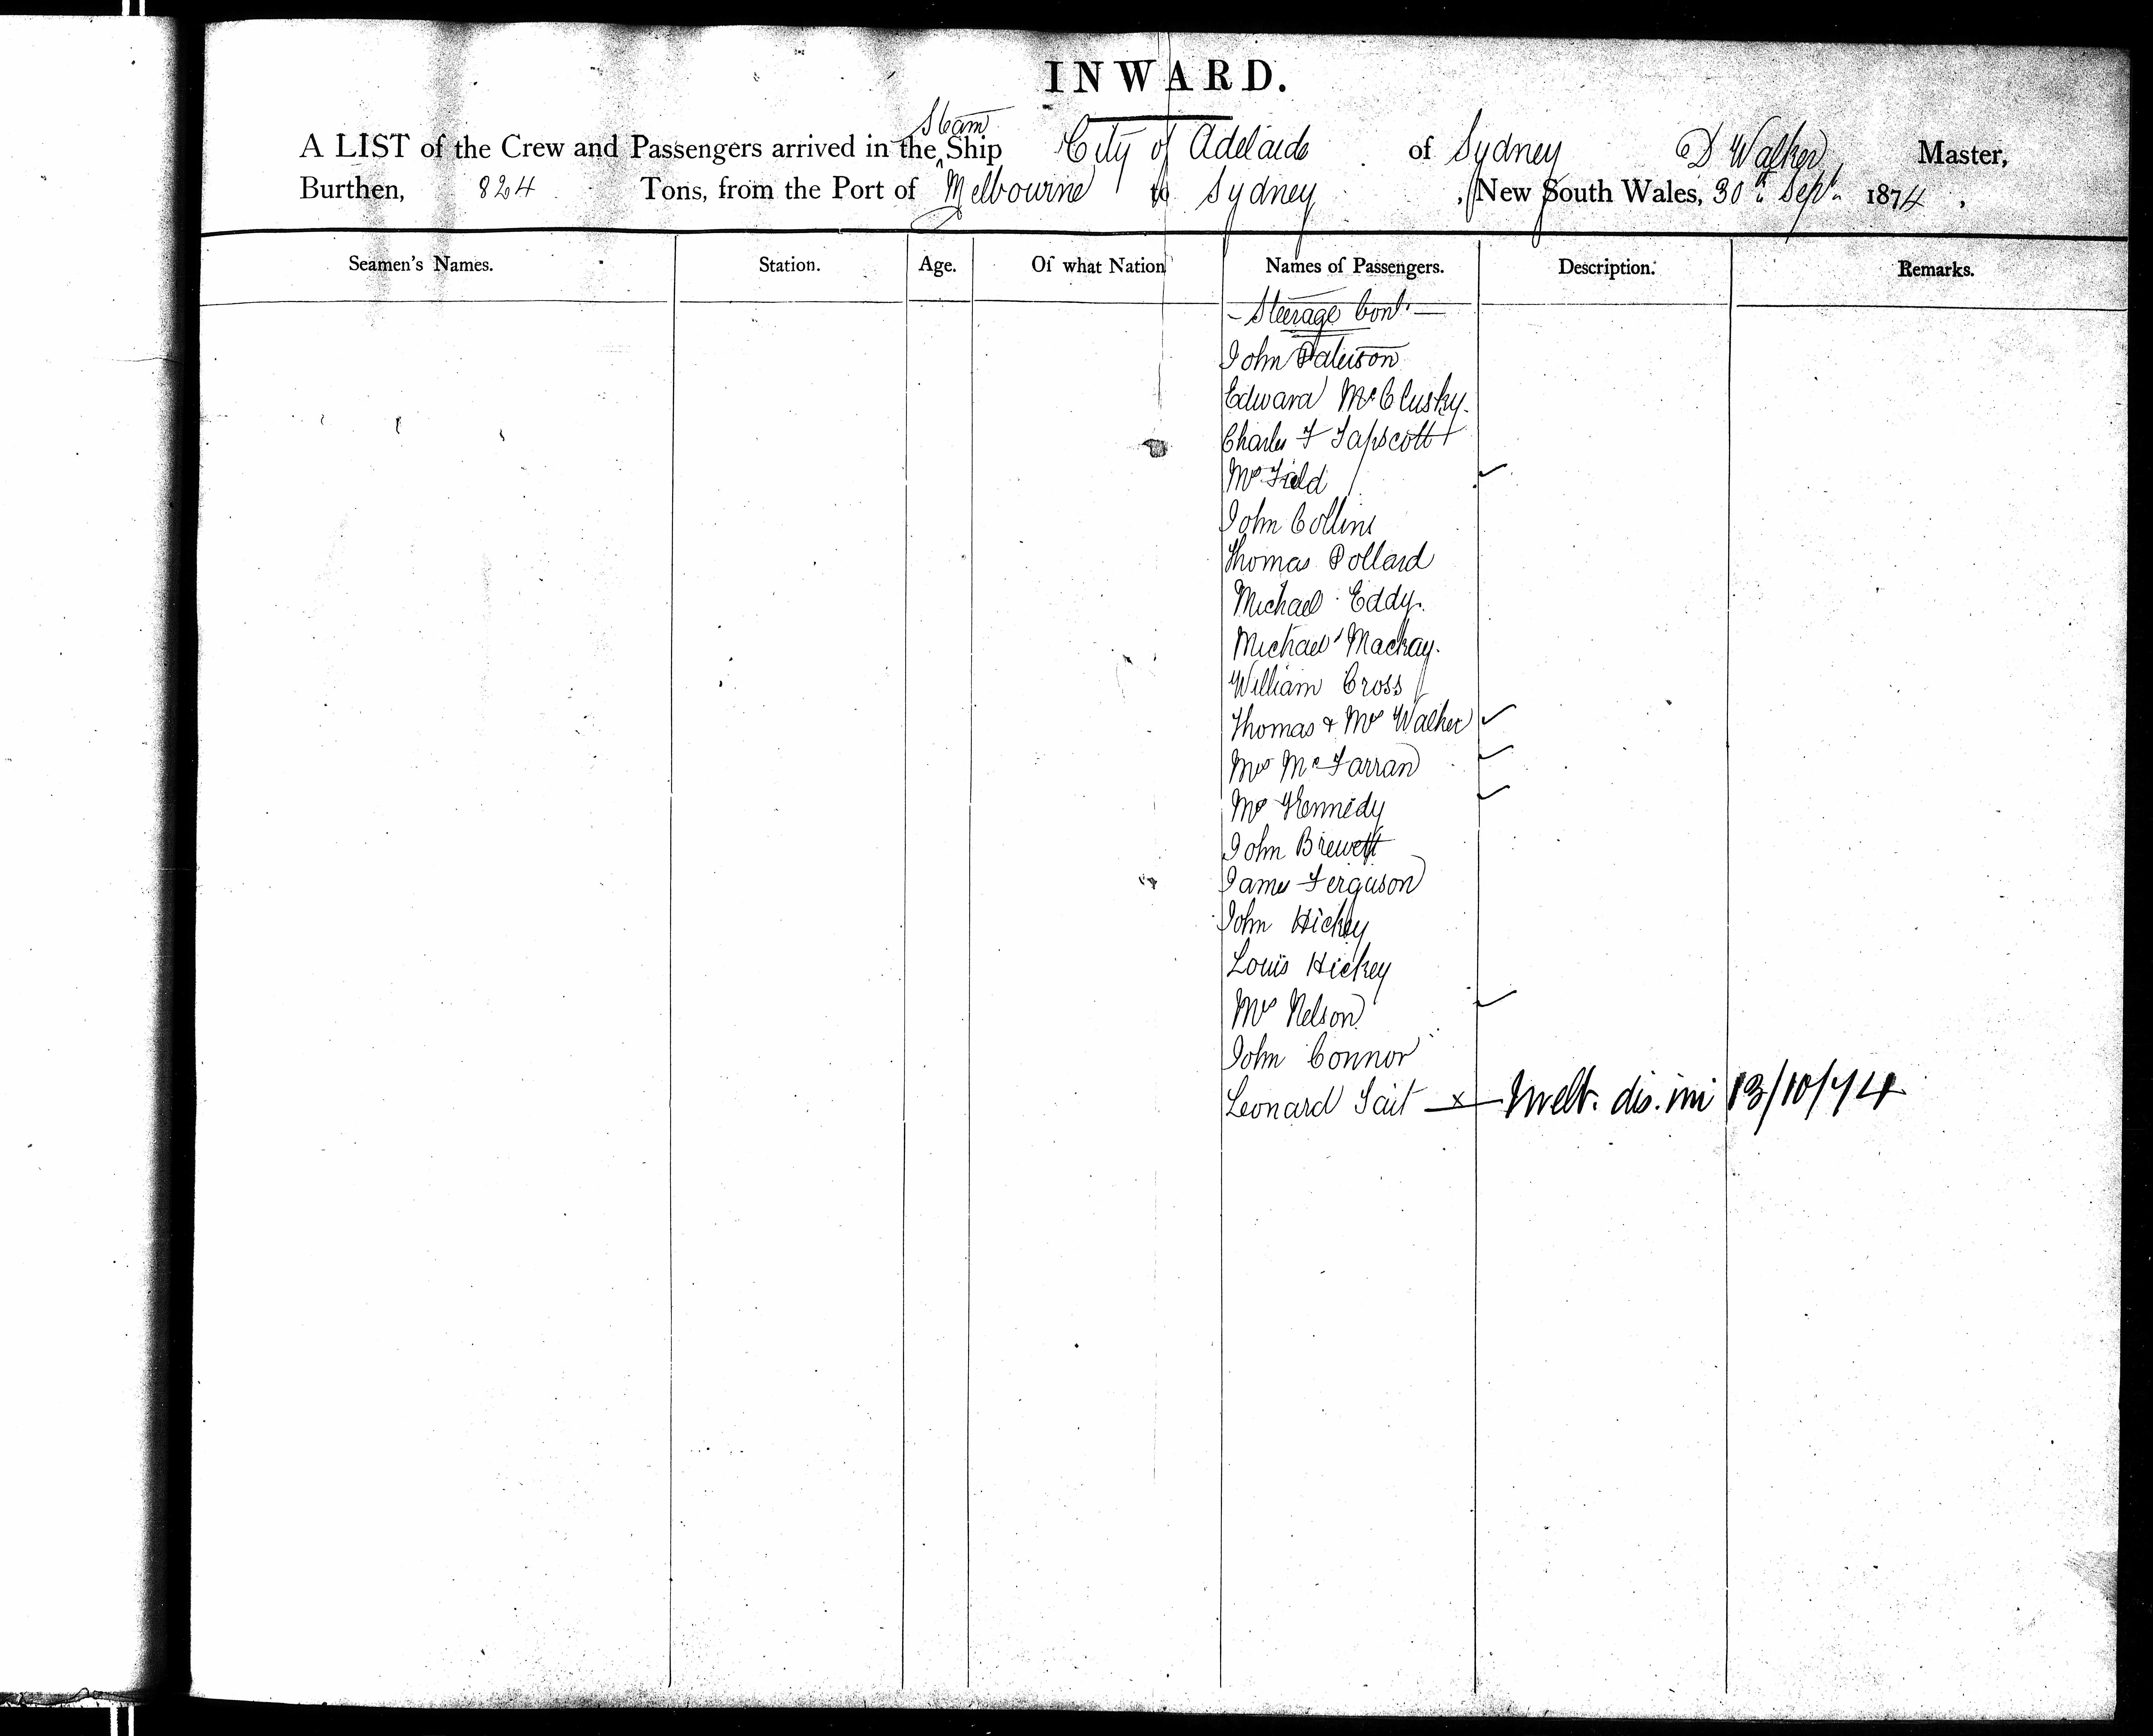 INWARD.
Steam
A LIST of the Crew and Passengers arrived in the ^ Ship City of Adelaide of Sydney D Walker, Master,
Burthen, 824 Tons, from the Port of Melbourne to Sydney, New South Wales, 30th Sept. 1874,
Seamen's Names. Station. Age. Of what Nation Names of Passengers. Description. Remarks.
- Steerage Cont. -
John Paterson
Edward McClusky.
Charles F Tapscott
Mrs Field ✓
John Collins
Thomas Pollard
Michael Eddy.
Michael Mackay.
William Cross
Thomas & Mrs Walker ✓
Mrs McFarran ✓
Mrs Kennedy ✓
John Brewett
James Ferguson
John Hickey
Louis Hickey
Mrs Nelson ✓
John Connor
Leonard Tait x Melb. dis. 13/10/74